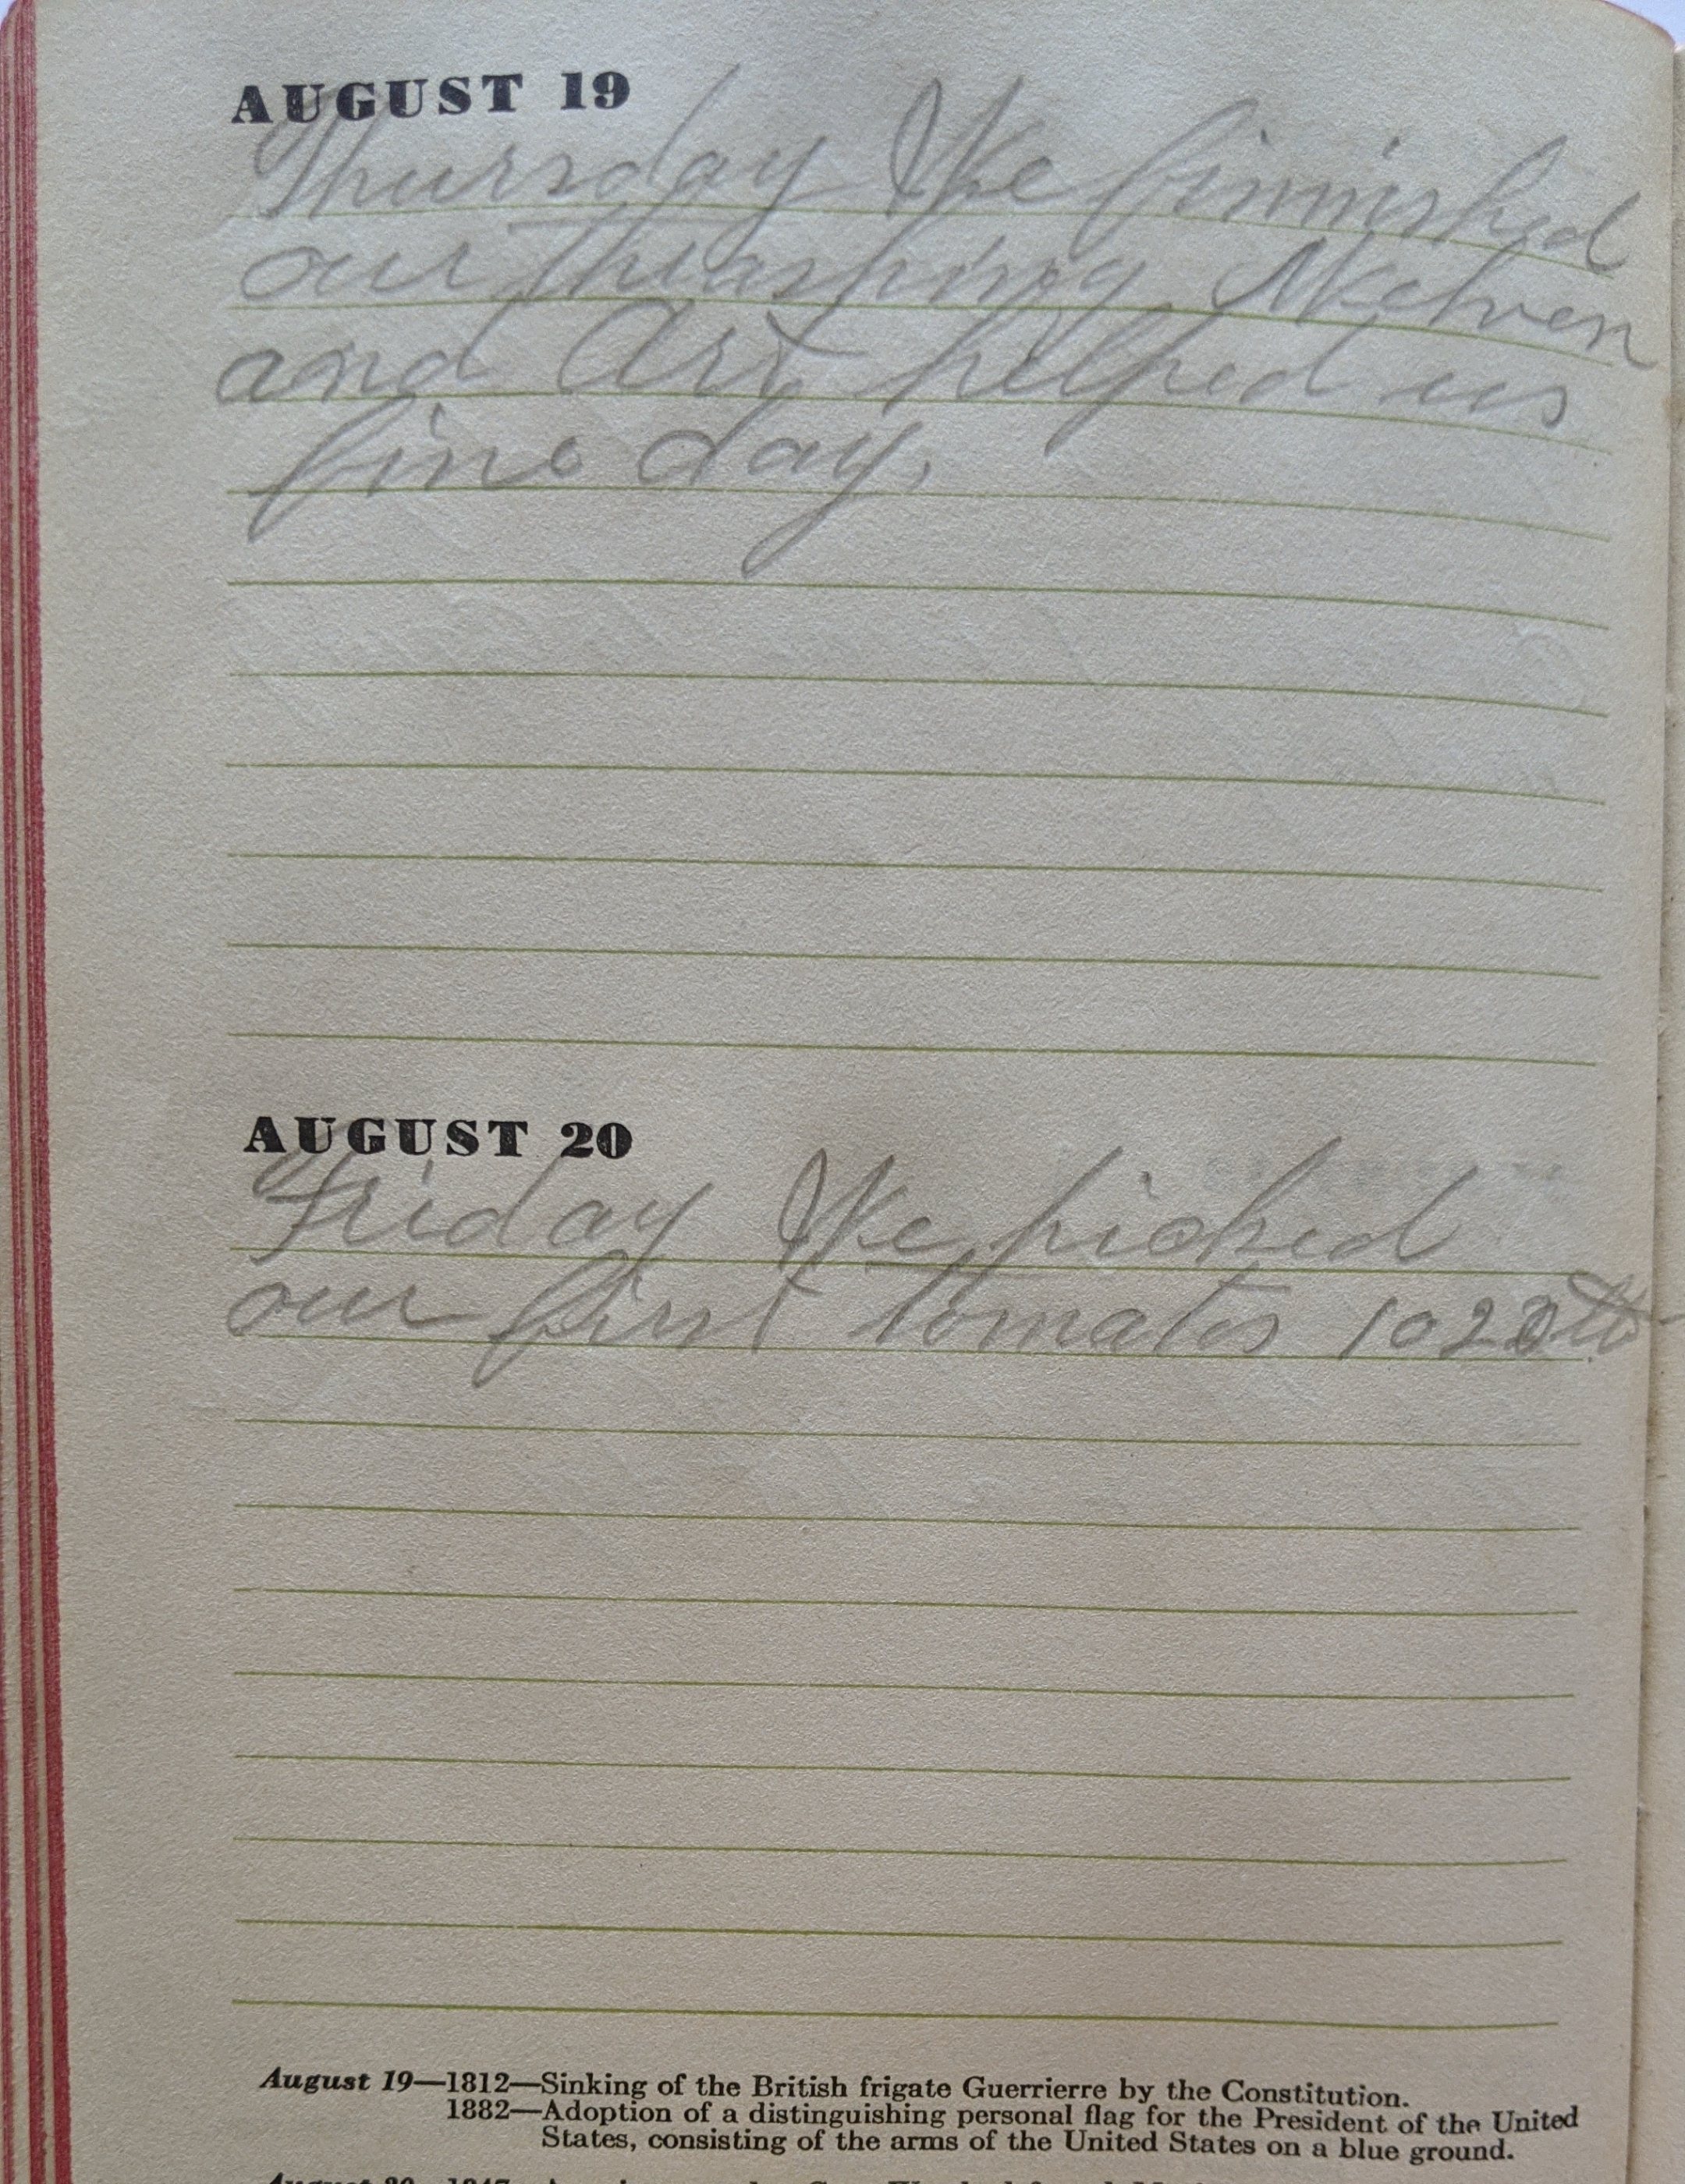 AUGUST 19
Thursday We finnished
our thrashing Melven
and Art helped us
fine day.
AUGUST 20
Friday We picked
our first tomatos 1020 lb
August 19—1812—Sinking of the British frigate Guerrierre by the Constitution.
1882—Adoption of a distinguishing personal flag for the President of the United
States, consisting of the arms of the United States on a blue ground.